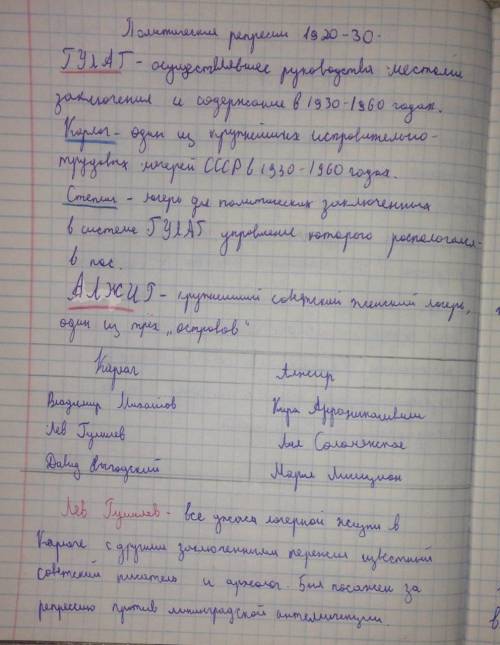 Политические репрессии 1920-30.
ГУЛАГ - осуществлявшее руководства местами
заключения и содержание в 1930-1960 годах.
Карлаг - один из крупнейших исправительно-
трудовых лагерей СССР в 1930-1960 годах.
Степлаг - лагерь для политических заключенных
в системе ГУЛАГ управление которого располагался
в пос.
АЛЖИР - крупнейший советский женский лагерь,
один из трёх „островов"
Карлаг Алжир
Владимир Кира
Лев Гумилев Лия
Давид Выгодский Мария Лисициан
Лев Гумилев - все ужасы лагерной жизни в
Карлаге с другими заключенными пережил известный
советский писатель и археолог. Был посажен за
репрессию против ленинградской интеллигенции.